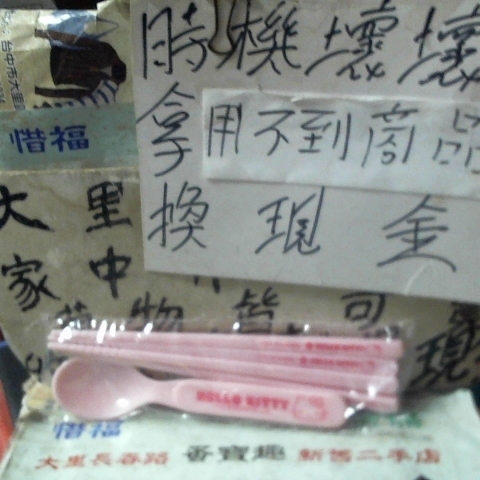 時機壞壞
拿用不到商品
換現金
台中市大里
惜福
大里
家中
物皆可
現
HELLO KITTY
惜福
大里長春路 香寶趣 新舊二手店